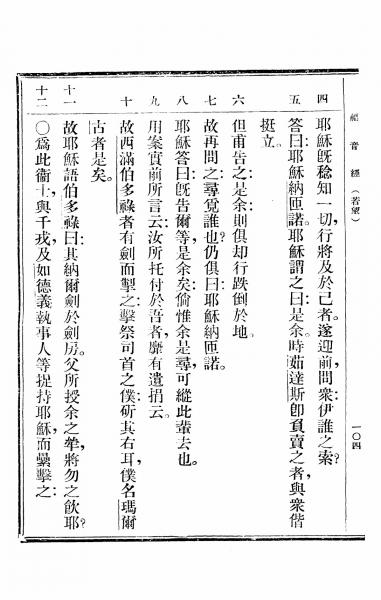 福音經（若望）
一〇四
四 耶穌既稔知一切，行將及於己者。遂迎前問衆伊誰之索？
五 答曰：耶穌納匝諾。耶穌謂之曰：是余。時茹達斯卽負賣之者，與衆偕
挺立。
六 但甫告之：是余，則俱却行跌倒於地。
七 故再問之：尋覓誰也？仍俱曰：耶穌納匝諾。
八 耶穌答曰：既告爾等，是余矣；倘惟余是尋，可縱此輩去也。
九 用案實前所言云：汝所托付於吾者，靡有遺捐云。
十 故西滿伯多祿者有劍而掣之，擊祭司首之僕斫其右耳，僕名瑪爾
古者是矣。
十一 故耶穌語伯多祿曰：其納爾劍於劍房。父所授余之爵，將勿之飲耶？
十二 〇爲此衞士，與千戎，及如德義執事人等捉持耶穌而纍擊之：